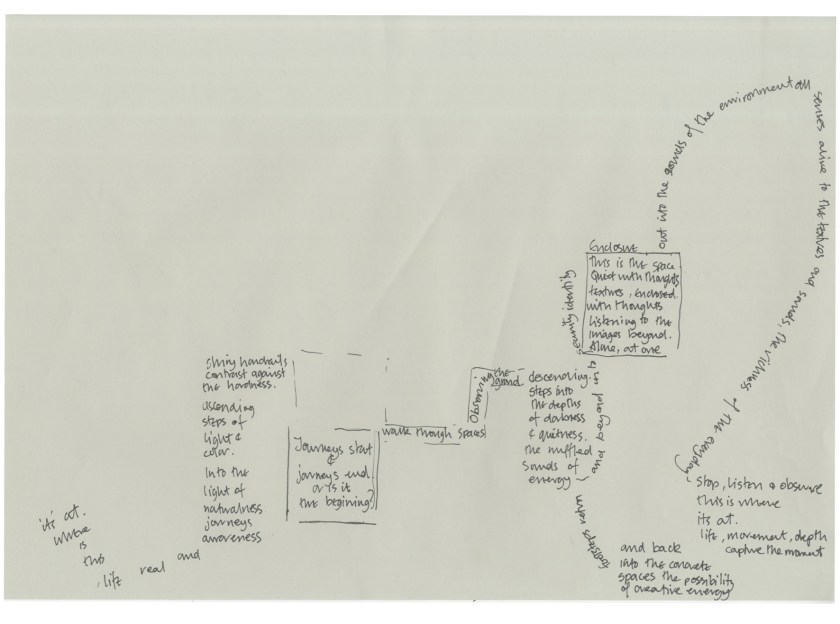 Shiny handrails
contrast against
the hardness.
ascending
steps of
light &
color.
Into the
light of
naturalness
journeys
awareness
and real life,
this is where it's at.
Journeys start
&
journeys end
or is it
the begining?
walk though spaces
Observing the
descending
steps into
the depths
of darkness
& quietness.
the muffled
sounds of
energy
Security identity
Enclosure
This is the space
Quiet with thoughts
textures, enclosed
with thoughts
Listening to the
images beyond.
Alone, at one
out into the sounds of the environment all senses alive to the textures and sounds, the richness of the everyday
Stop, listen & observe
this is where
its at.
life, movement, depth
capture the moment
and back
into the concrete
spaces the possibility
of creative energy
footsteps